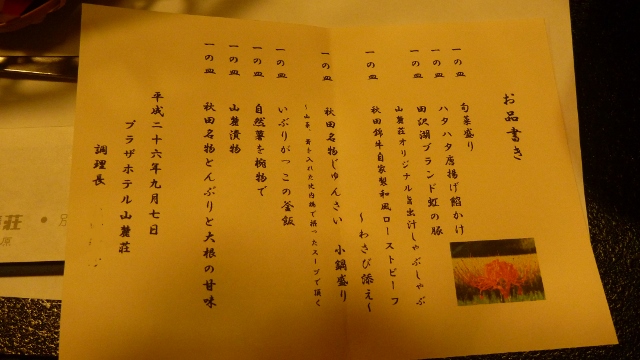 お品書き
一の皿 旬菜盛り
一の皿 ハタハタ唐揚げ餡かけ
一の皿 田沢湖ブランド虹の豚
山麓荘オリジナル旨出汁しゃぶしゃぶ
一の皿 秋田錦牛自家製和風ローストビーフ
〜わさび添え〜
一の皿 秋田名物じゅんさい 小鍋盛り
を入れた比内鶏で摂ったスープで頂く
一の皿 いぶりがっこの釜飯
一の皿 自然薯を椀物で
一の皿 山麓漬物
一の皿 秋田名物とんぶりと大根の甘味
平成二十六年九月七日
プラザホテル山麓荘
調理長
荘・別
原